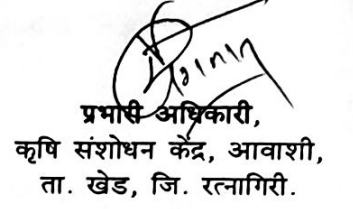 प्रभारी अधिकारी,
कृषि संशोधन केंद्र, आवाशी,
ता. खेड, जि. रत्नागिरी.